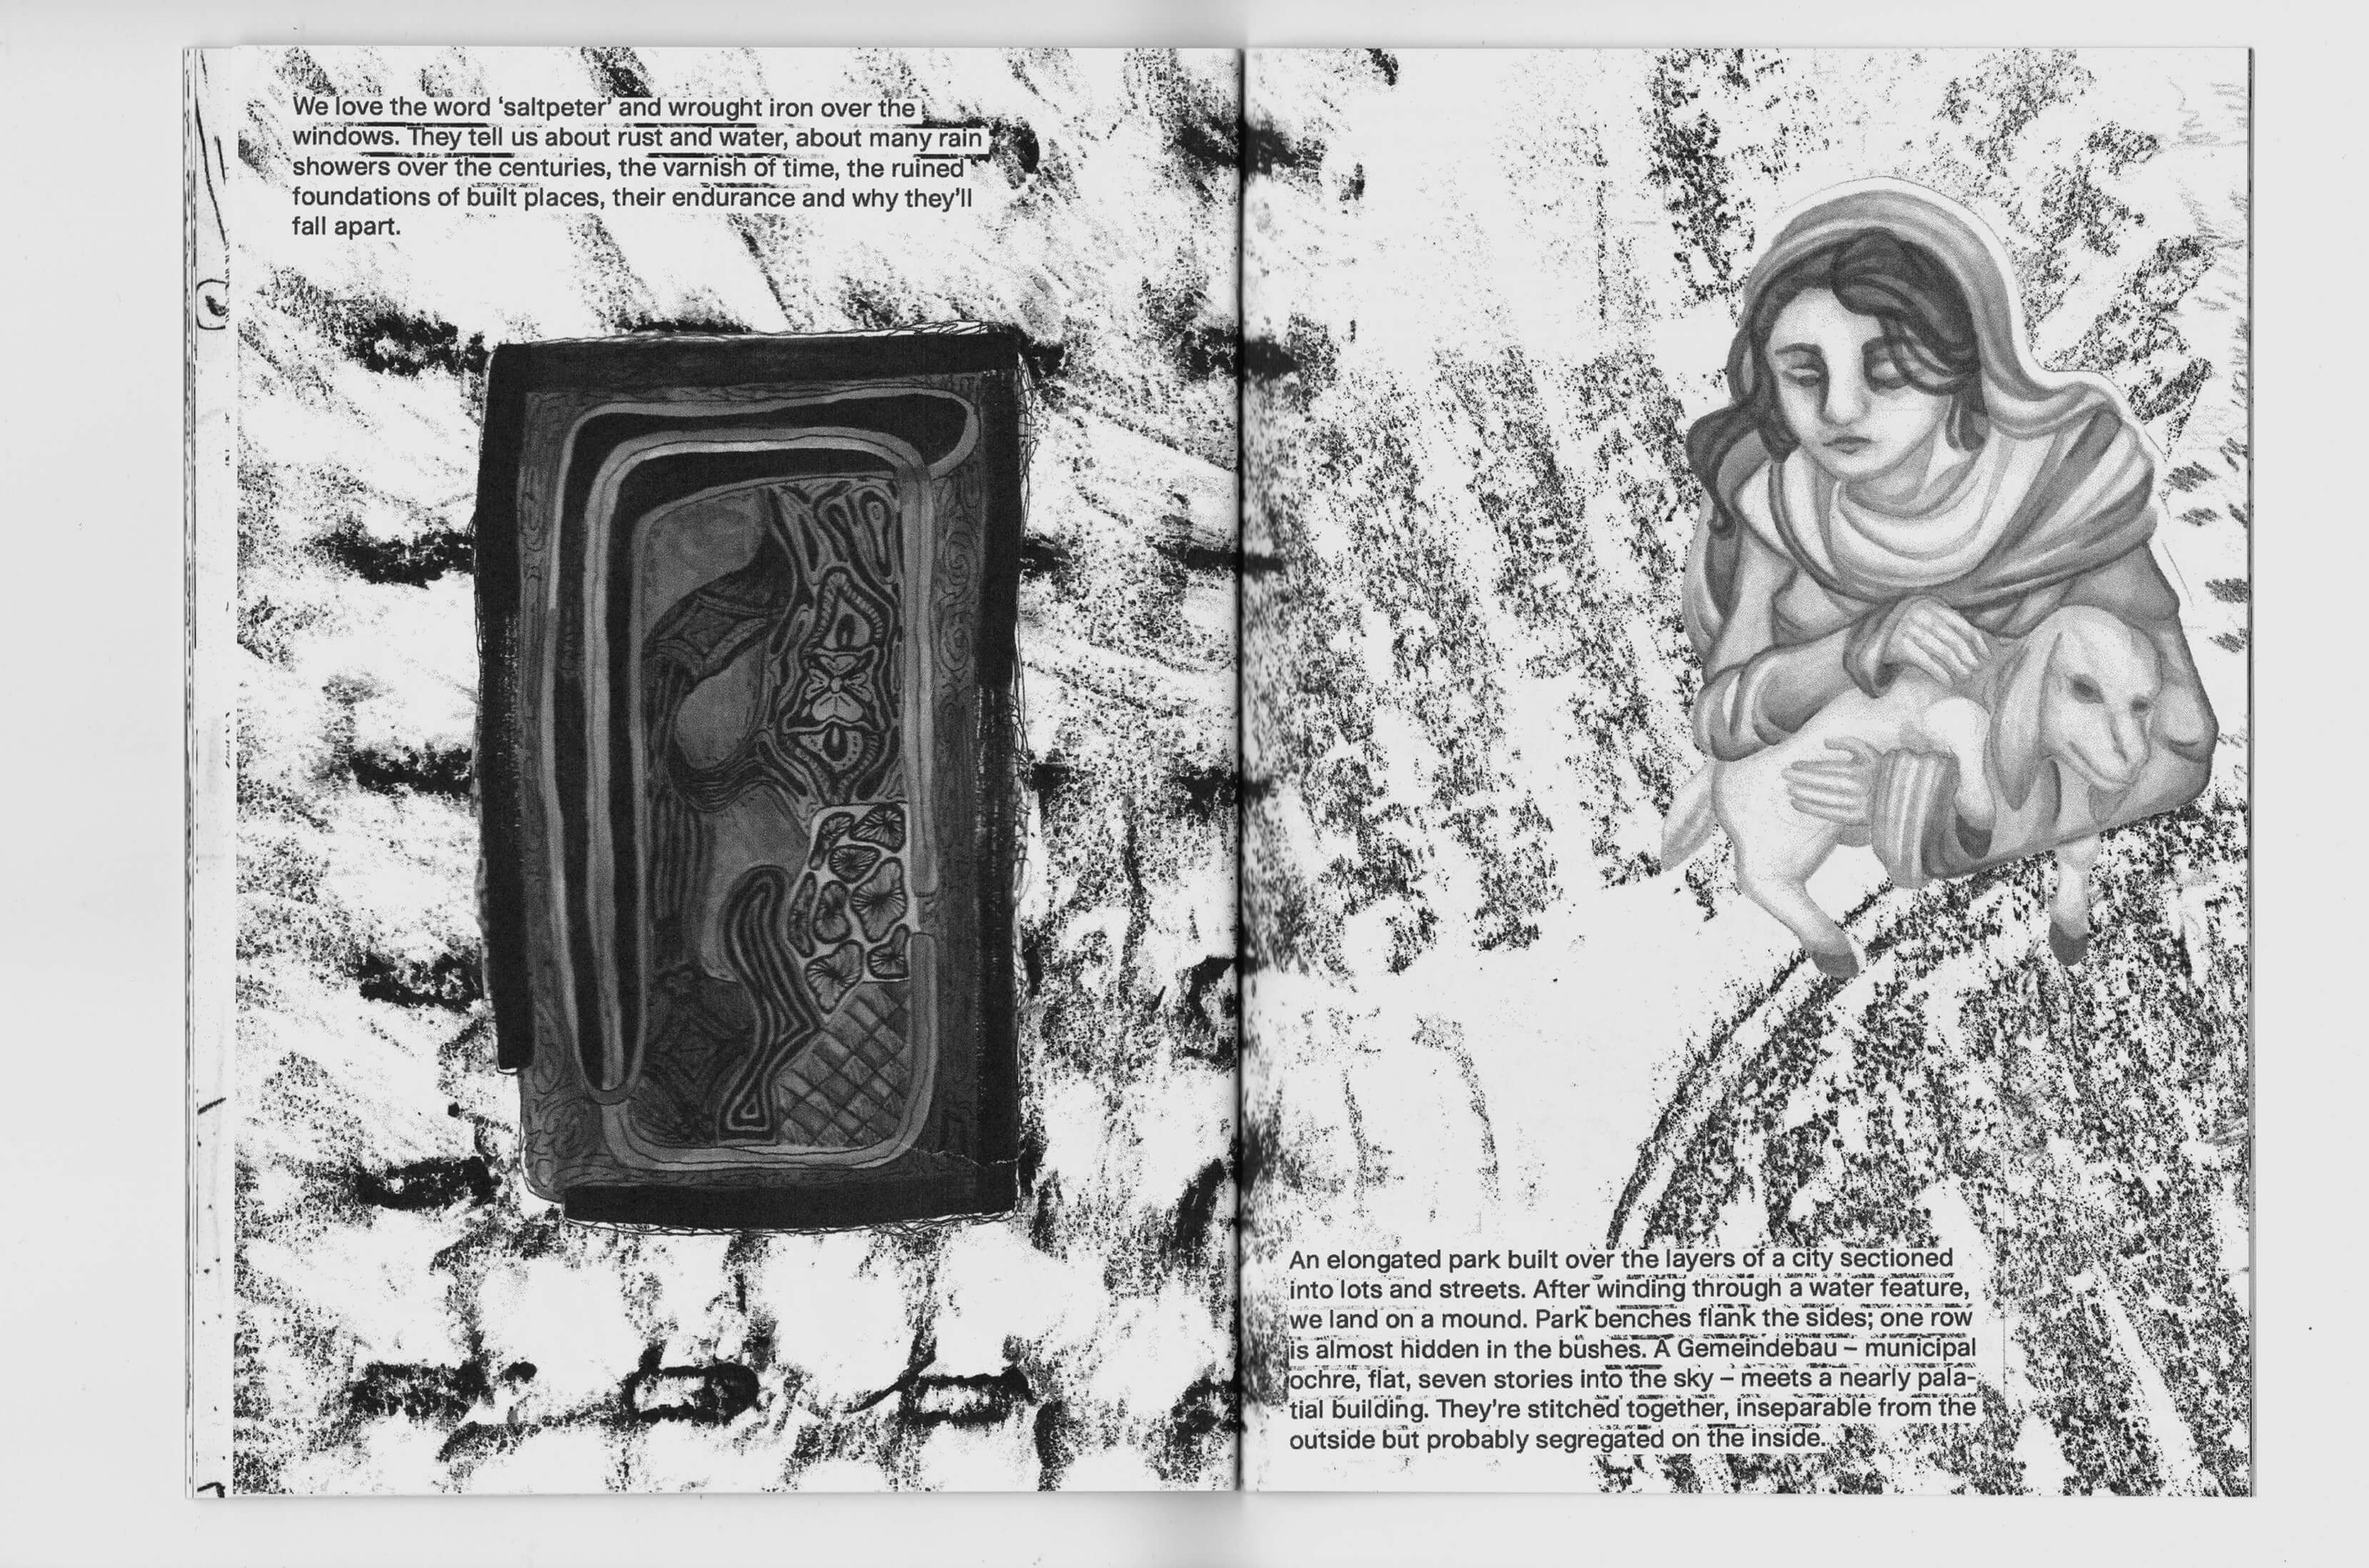 We love the word ‘saltpeter’ and wrought iron over the
windows. They tell us about rust and water, about many rain
showers over the centuries, the varnish of time, the ruined
foundations of built places, their endurance and why they’ll
fall apart.
An elongated park built over the layers of a city sectioned
into lots and streets. After winding through a water feature,
we land on a mound. Park benches flank the sides; one row
is almost hidden in the bushes. A Gemeindebau – municipal
ochre, flat, seven stories into the sky – meets a nearly pala-
tial building. They’re stitched together, inseparable from the
outside but probably segregated on the inside.